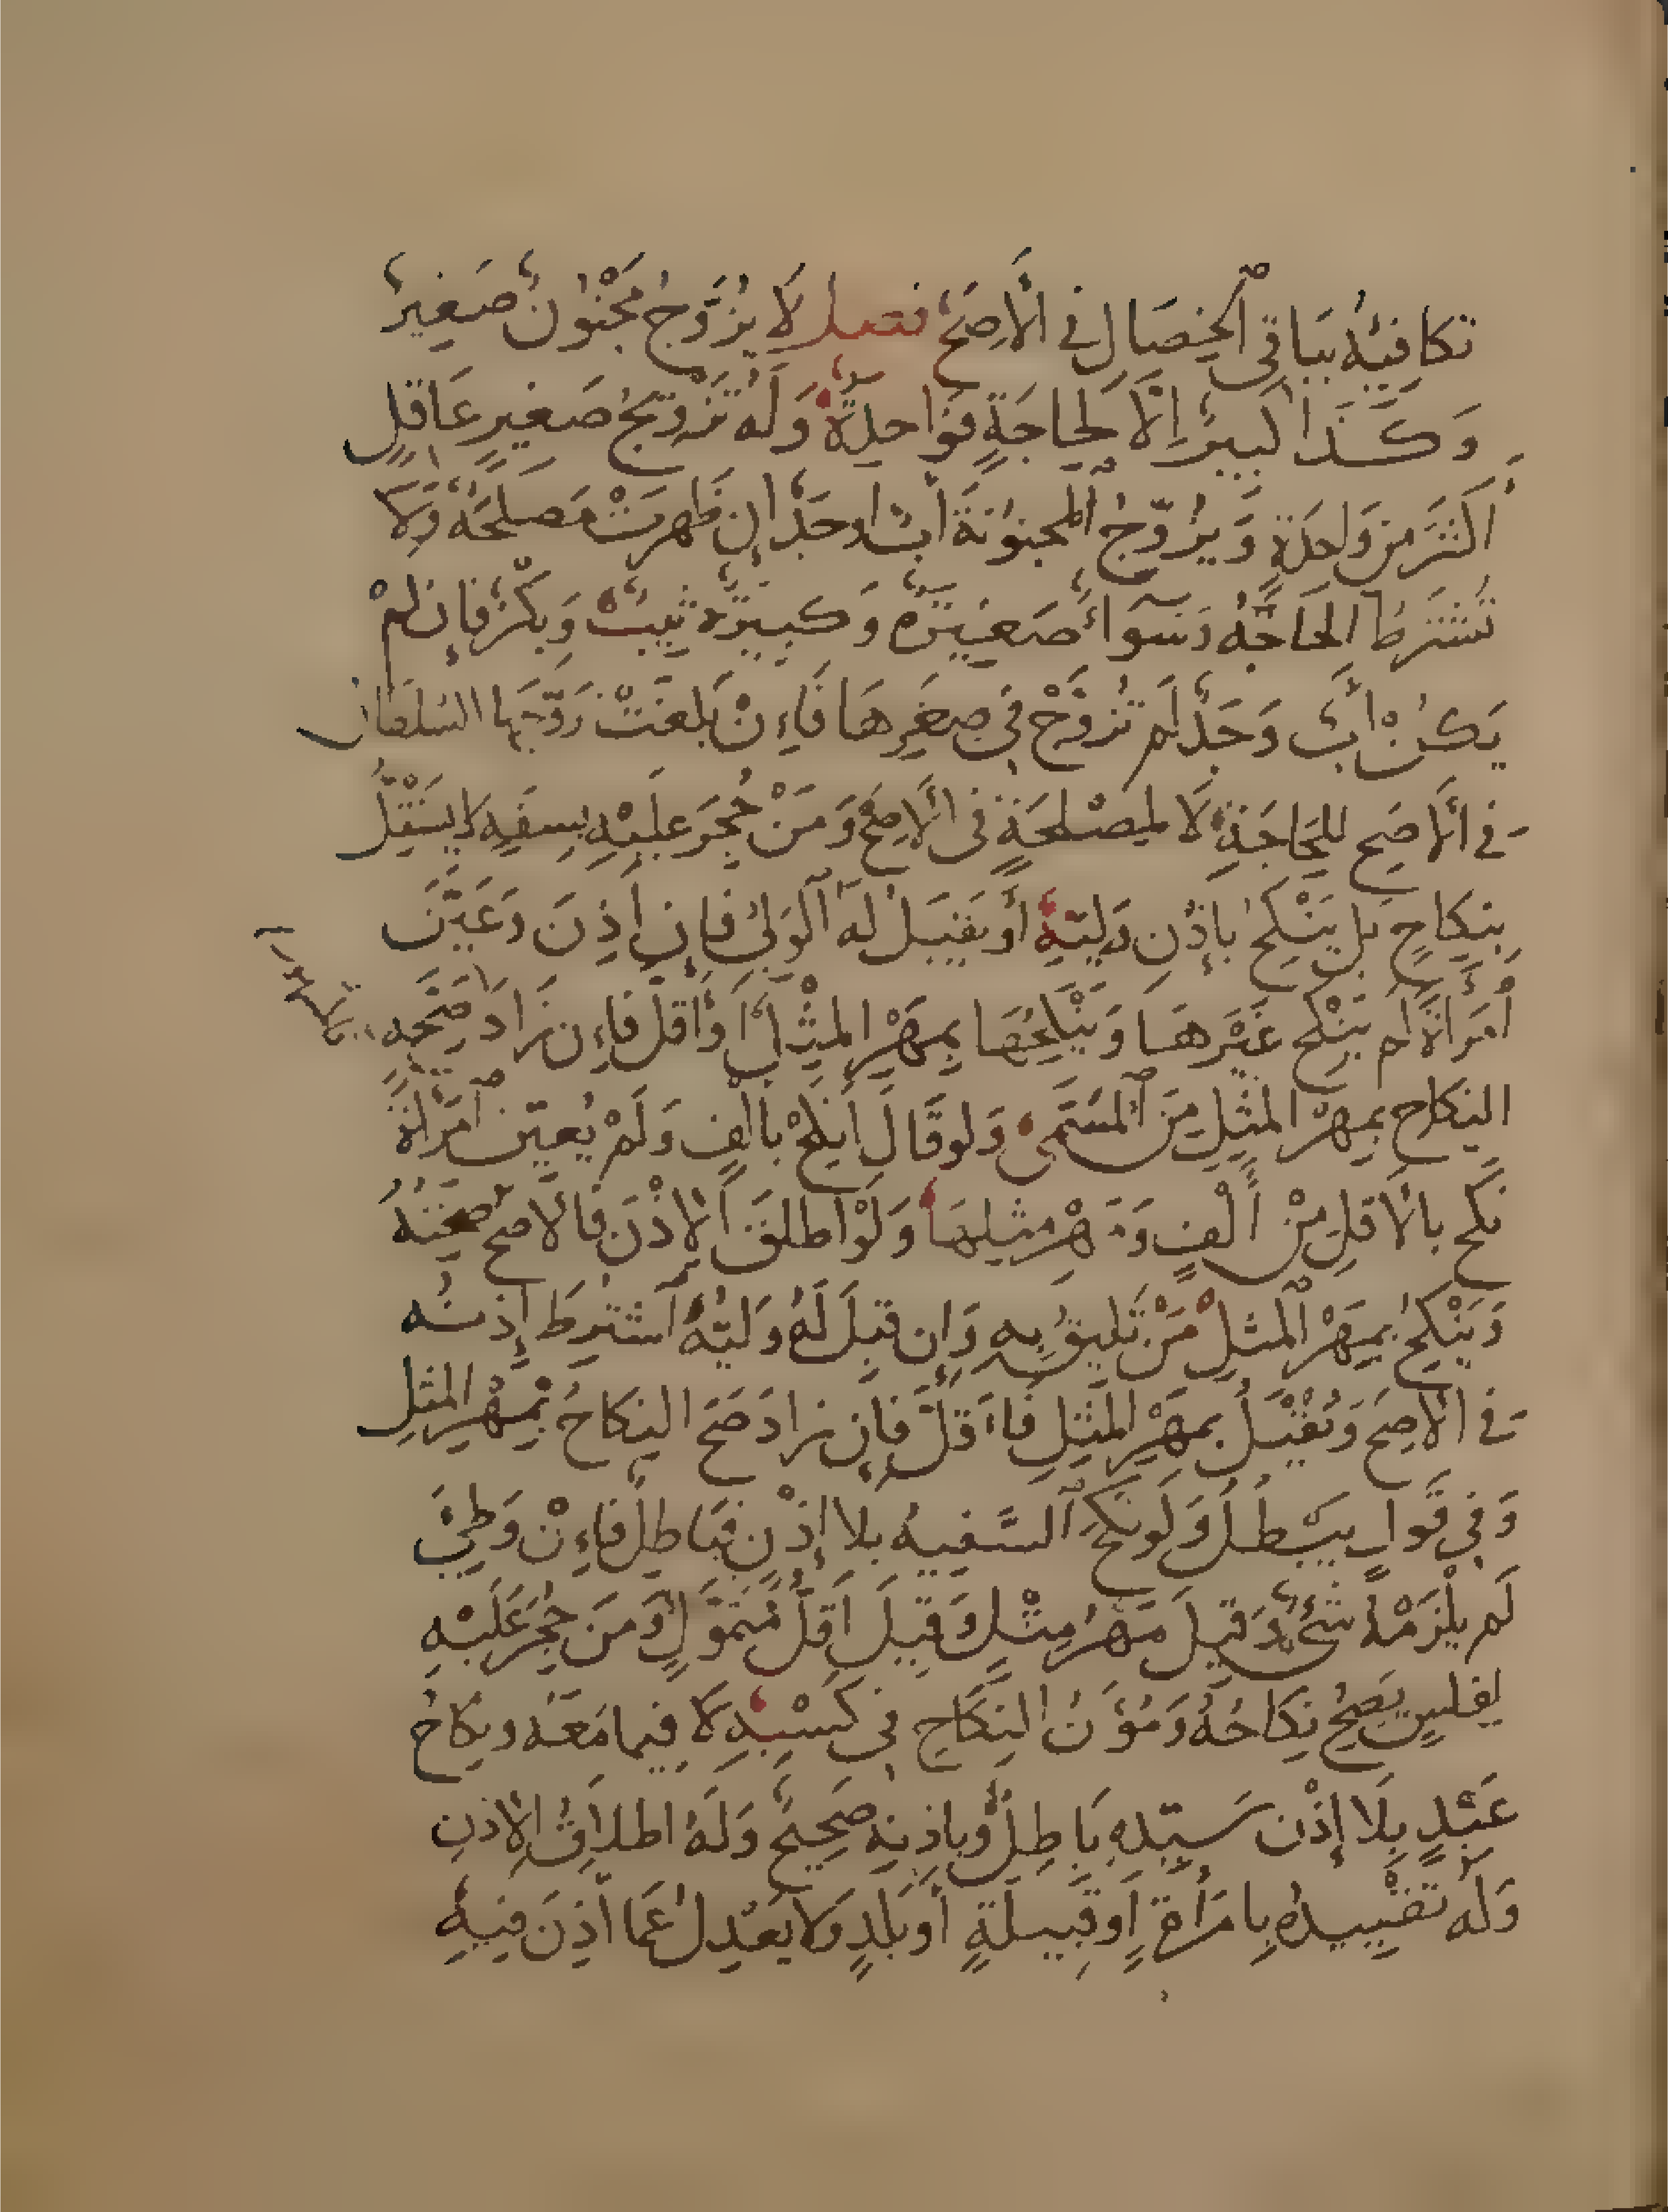 تكافيه بباقي الخصال في الأصح فصل لا يزوج مجنون صغير
وكذا كبير إلا لحاجة فواحدة وله تزويج صغير عاقل
أكثر من واحدة ويزوج المجنونة أب او جد إن ظهرت مصلحة ولا
تشترط الحاجة وسواء صغيرة وكبيرة ثيب وبكر فإن لم
يكن أب وجد لم تزوج في صغرها فإن بلغت زوجها السلطان
في الأصح للحاجة لا لمصلحة في الأصح ومن حجر عليه بسفه لا يستقل
بنكاح بل ينكح بإذن وليه أو يقبل له الولي فإن أذن وعين
امرأة لم ينكح غيرها وينكحها بمهر المثل أو أقل فإن زاد صح
النكاح بمهر المثل من المسمى ولو قال انكح بألف ولم يعين امرأة
نكح بالأقل من ألف ومهر مثلها ولو اطلق الإذن فالأصح صحته
وينكح بمهر المثل من تليق به وإن قبل له وليه اشترط إذنه
في الأصح ويقبل بمهر المثل فأقل فإن زاد صح النكاح بمهر المثل
وفي قول يبطل ولو نكح السفيه بلا إذن فباطل فإن وطئ
لم يلزمه شئ وقيل مهر مثل وقيل أقل متمول ومن حجر عليه
بفلس يصح نكاحه ومؤن النكاح في كسبه لا فيما معه ونكاح
عبد بلا إذن سيده باطل وبإذنه صحيح وله اطلاق الإذن
وله تقييده بامرأة أو قبيلة أو بلد ولا يعدل عما أذن فيه